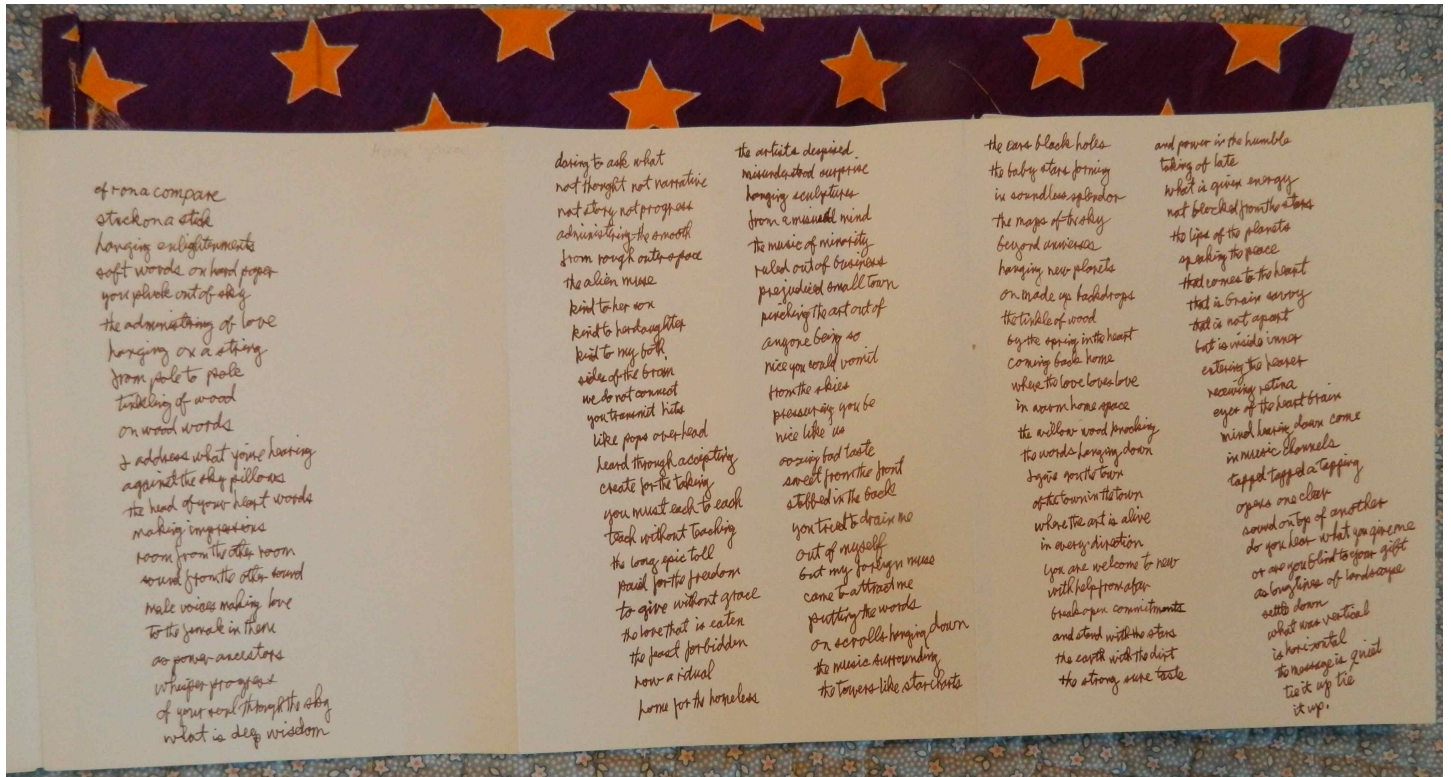 of ron a compare
stuck on a stick
hanging enlightenments
soft words on hard paper
you pluck out of sky
the administring of love
hanging on a string
from pole to pole
tinkling of wood
on wood words
I address what you're hearing
against the sky pillows
the head of your heart words
making impressions
room from the other room
sound from the other sound
male voices making love
to the female in them
as power ancestors
whisper progress
of your soul through the sky
what is deep wisdom
daring to ask what
not thought not narrative
not story not progress
administring the smooth
from rough outer space
the alien muse
kind to her son
kind to her daughter
kind to my both
sides of the brain
we do not connect
you transmit hits
like pops overhead
heard through accepting
create for the taking
you must each to each
teach without teaching
the long epic toll
paid for the freedom
to give without grace
the love that is eaten
the feast forbidden
now a ritual
home for the homeless
the artists despised
misunderstood surprise
hanging sculptures
from a misused mind
the music of minority
ruled out of business
prejudiced small town
pinching the art out of
anyone being so
nice you could vomit
from the skies
pressuring you be
nice like us
oozing bad taste
sweet from the front
stabbed in the back
you tried to drain me
out of myself
but my foreign muse
came to attract me
putting the words
on scrolls hanging down
the music surrounding
the towers like star charts
the ears black holes
the baby stars forming
in soundless splendor
the maps of the sky
beyond
hanging new planets
on made up backdrops
the tinkle of wood
by the spring in the heart
coming back home
where the love loves love
in warm home space
the willow wood knocking
the words hanging down
I give you the town
of the town in the town
where the art is alive
in every direction
you are welcome to new
with help from afar
break open commitments
and stand with the stars
the earth with the dirt
the strong sure taste
and power in the humble
taking of late
what is given energy
not blocked from the stars
the lips of the planets
speaking the peace
that comes to the heart
that is brain savvy
that is not apart
but is inside inner
entering the hearer
receiving retina
eyes of the heart brain
mind hearing down come
in music channels
tapped tapped a tapping
opens one clear
sound on top of another
do you hear what you give me
or are you blind to your gift
as long lines of landscape
settle down
what was vertical
is horizontal
the message is quiet
tie it up tie
it up.